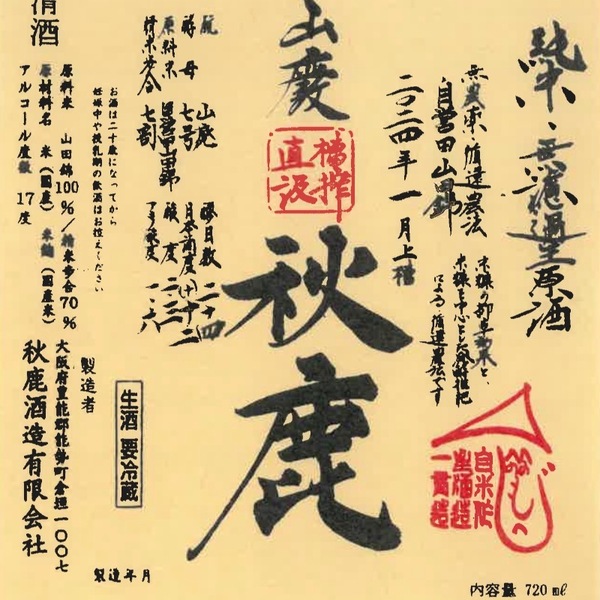 純米・無濾過生原酒
無農薬・循環農法
自営田山田錦
二〇二四年一月上槽
米糠の部卓効果と、
米糠を中心とした発酵堆肥
による循環農法です
自米作
生酒造
一貫造
内容量 720mℓ
山廃
槽搾
直汲
秋鹿
酛 山廃
酵母 七号
原料米 自営田山田錦
精米歩合 七割
醪日数 二十四
日本酒度 (+)十二
酸度 二・三
アミノ酸度 一・六
生酒 要冷蔵
お酒は二十歳になってから
妊娠中や授乳期の飲酒はお控えください
製造者
大阪府豊能郡能勢町倉垣一〇〇七
秋鹿酒造有限会社
製造年月
清酒
原料米 山田錦100%/精米歩合70%
原材料名 米(国産) 米麹(国産米)
アルコール度数 17度